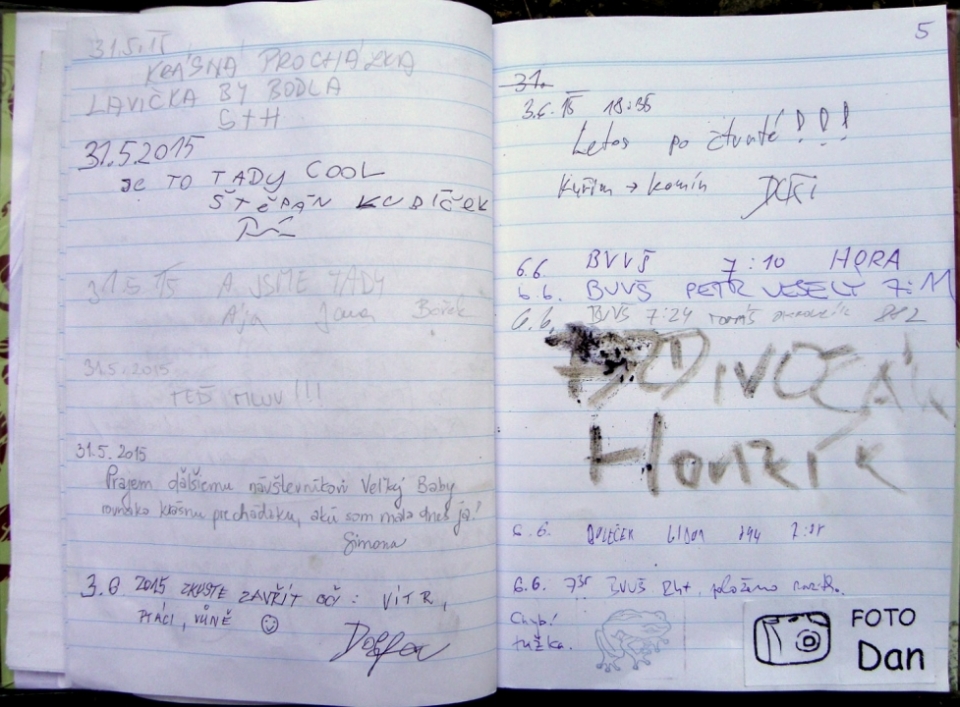 31.5.15
KRÁSNÁ PROCHÁZKA
LAVIČKA BY BODLA
S+H
31.5.2015
JE TO TADY COOL
ŠTĚPÁN KUBÍČEK
31.5.15 A JSME TADY
Ája Jana Bořek
31.5.2015
TEĎ MLUV!!!
31.5.2015
Prajem ďalšiemu návštevníkovi Veľkej Baby
rovnako krásnu prechádzku, akú som mala dnes ja!
Simona
3.6 2015 ZKUSTE ZAVŘÍT OČI: VÍTR,
PTÁCI, VŮNĚ ☺
5
31.
3.6.15 18:35
Letos po čtvrté!!!
Kuřim → Komín
6.6. BVVŠ 7:10 HORA
6.6. BUVŠ PETR VESELÝ 7:11
6.6. BVVŠ 7:24 TOMÁŠ 882
DIVOČÁK
Honzík
6.6. LIBOR
6.6. 7 BVVŠ 24+, položeno
Chybí
tužka.
FOTO
Dan